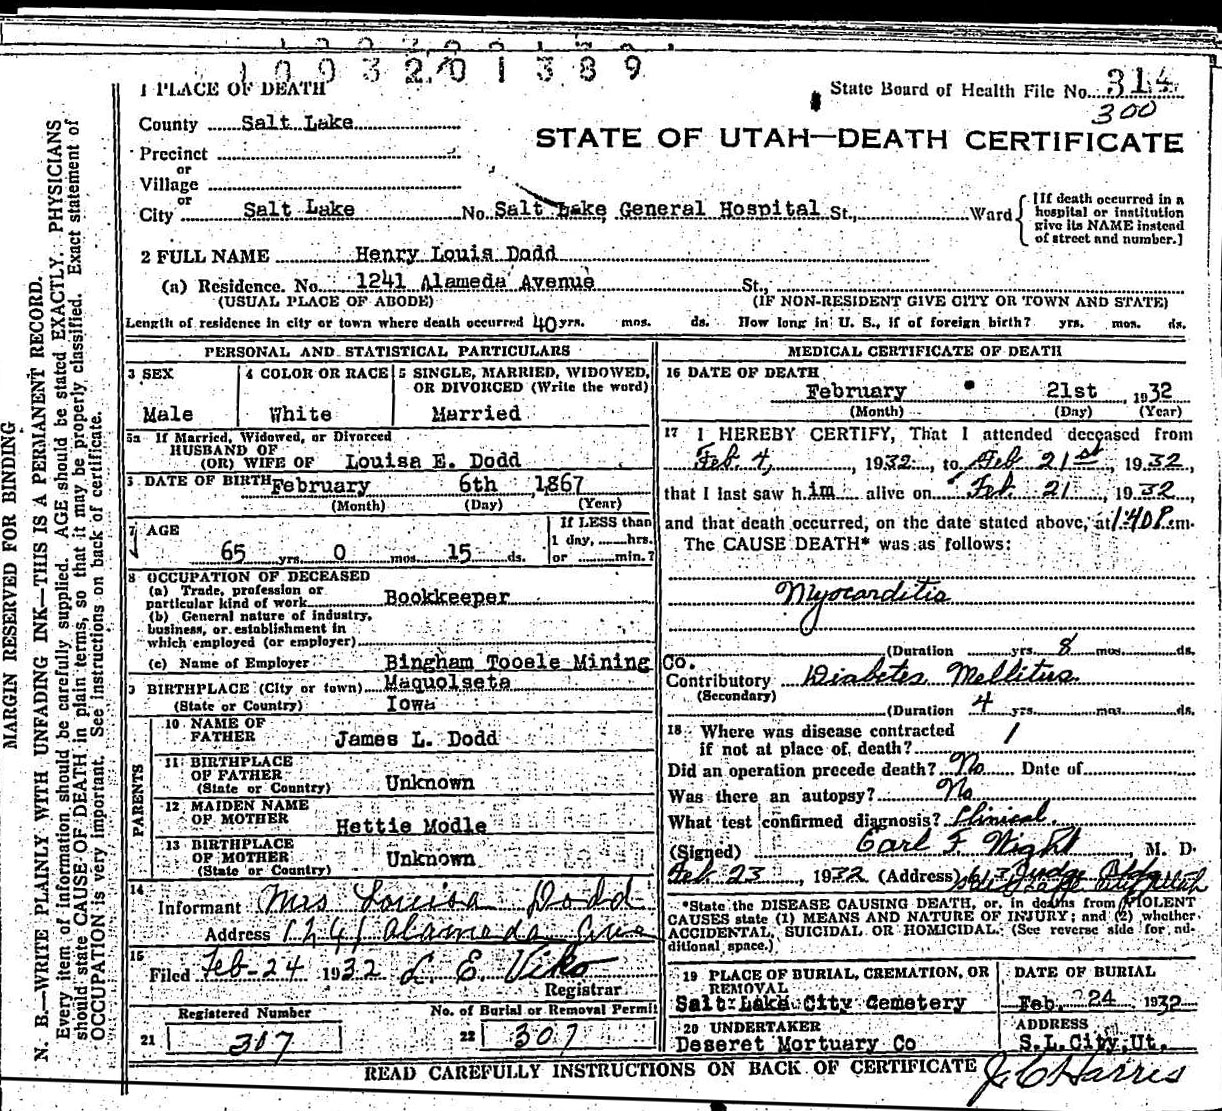 1003201389
1 PLACE OF DEATH
State Board of Health File No. 314
300
County Salt Lake
STATE OF UTAH—DEATH CERTIFICATE
Precinct
or
Village
or
City Salt Lake No. Salt Lake General Hospital St., Ward
[If death occurred in a
hospital or institution
give its NAME instead
of street and number.]
2 FULL NAME Henry Louis Dodd
(a) Residence. No. 1241 Alameda Avenue St.,
(USUAL PLACE OF ABODE) (IF NON-RESIDENT GIVE CITY OR TOWN AND STATE)
Length of residence in city or town where death occurred 40 yrs. mos. ds. How long in U. S., if of foreign birth? yrs. mos. ds.
PERSONAL AND STATISTICAL PARTICULARS
3 SEX
Male
4 COLOR OR RACE
White
5 SINGLE, MARRIED, WIDOWED,
OR DIVORCED (Write the word)
Married
5a If Married, Widowed, or Divorced
HUSBAND OF
(OR) WIFE OF Louisa E. Dodd
DATE OF BIRTH February 6th, 1867
(Month) (Day) (Year)
7 AGE
65 yrs. 0 mos. 15 ds.
If LESS than
1 day, hrs.
or min.?
8 OCCUPATION OF DECEASED
(a) Trade, profession or
particular kind of work Bookkeeper
(b) General nature of industry,
business, or establishment in
which employed (or employer)
(c) Name of Employer Bingham Tooele Mining Co.
9 BIRTHPLACE (City or town) Maquolseta
(State or Country) Iowa
PARENTS
10 NAME OF
FATHER James L. Dodd
11 BIRTHPLACE
OF FATHER
(State or Country) Unknown
12 MAIDEN NAME
OF MOTHER Hettie Modle
13 BIRTHPLACE
OF MOTHER
(State or Country) Unknown
14
Informant Mrs Louisa Dodd
Address 1241 Alameda Ave
15
Filed Feb-24 1932 L. E. Viko
Registrar
Registered Number
21 307
No. of Burial or Removal Permit
22 307
MEDICAL CERTIFICATE OF DEATH
16 DATE OF DEATH
February 21st, 1932
(Month) (Day) (Year)
17 I HEREBY CERTIFY, That I attended deceased from
Feb. 4, 1932, to Feb 21st, 1932,
that I last saw him alive on Feb. 21, 1932,
and that death occurred, on the date stated above, at 1:40 P.m.
The CAUSE DEATH* was as follows:
Myocarditis
(Duration yrs. 8 mos. ds.
Contributory Diabetes Mellitus
(Secondary)
(Duration 4 yrs. mos. ds.
18 Where was disease contracted
if not at place of death?
Did an operation precede death? No Date of
Was there an autopsy? No
What test confirmed diagnosis? Clinical.
(Signed) Earl F. Wight, M. D.
Feb. 23, 1932 (Address) 613 Judge Bldg
Salt Lake City Utah
*State the DISEASE CAUSING DEATH, or, in deaths from VIOLENT
CAUSES state (1) MEANS AND NATURE OF INJURY; and (2) whether
ACCIDENTAL, SUICIDAL OR HOMICIDAL. (See reverse side for ad-
ditional space.)
19 PLACE OF BURIAL, CREMATION, OR
REMOVAL
Salt Lake City Cemetery
DATE OF BURIAL
Feb. 24, 1932
20 UNDERTAKER
Deseret Mortuary Co
ADDRESS
S.L.City,Ut.
READ CAREFULLY INSTRUCTIONS ON BACK OF CERTIFICATE
J C Harris
MARGIN RESERVED FOR BINDING
N. B.—WRITE PLAINLY WITH UNFADING INK—THIS IS A PERMANENT RECORD.
Every item of information should be carefully supplied. AGE should be stated EXACTLY. PHYSICIANS
should state CAUSE OF DEATH in plain terms, so that it may be properly classified. Exact statement of
OCCUPATION is very important. See instructions on back of certificate.